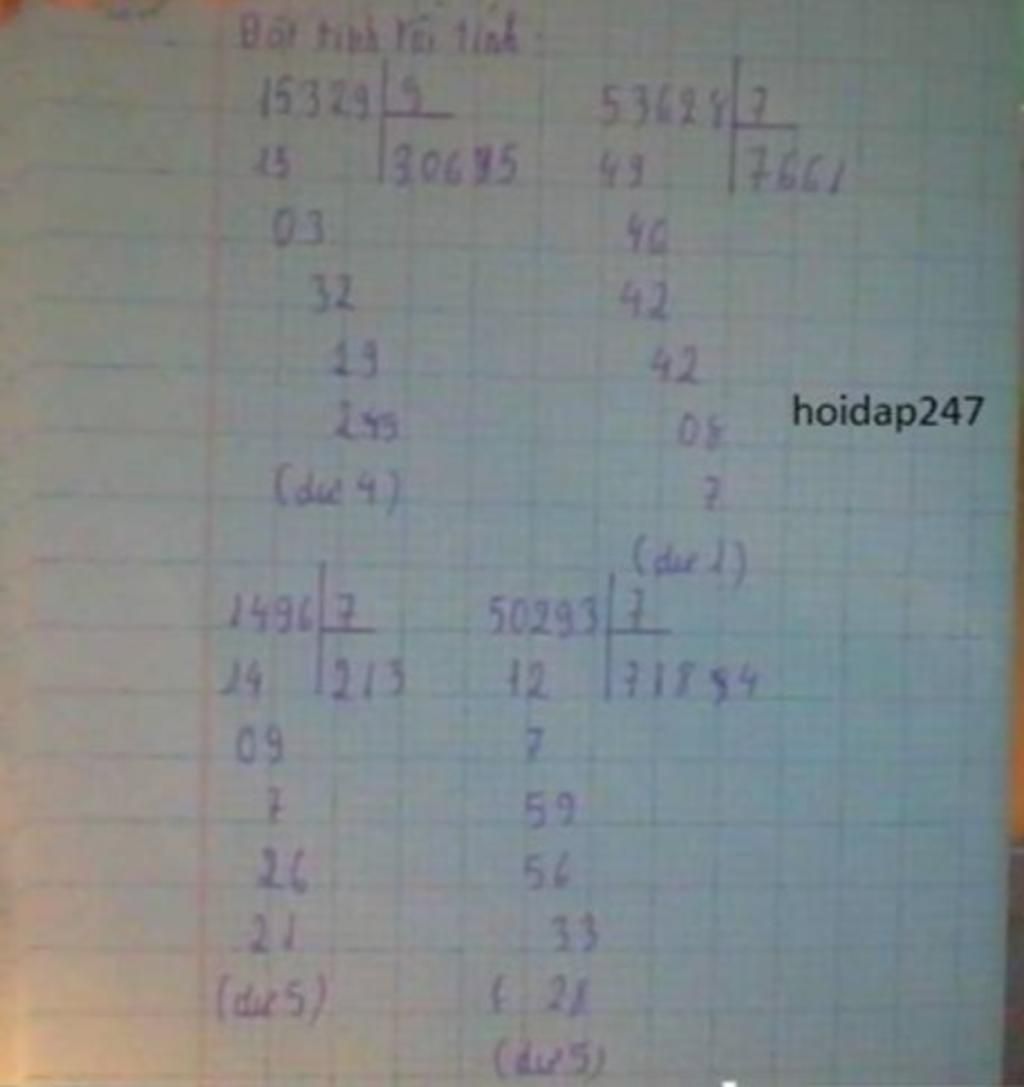 Đặt tính rồi tính:
15329 5 53628 7
15 3065 49 7661
03 46
32 42
29 42
08
(dư 4) 7
(dư 1)
1496 7 50293 7
14 213 12 7184
09 7
7 59
26 56
21 33
(dư 5) 28
(dư 5)
hoidap247